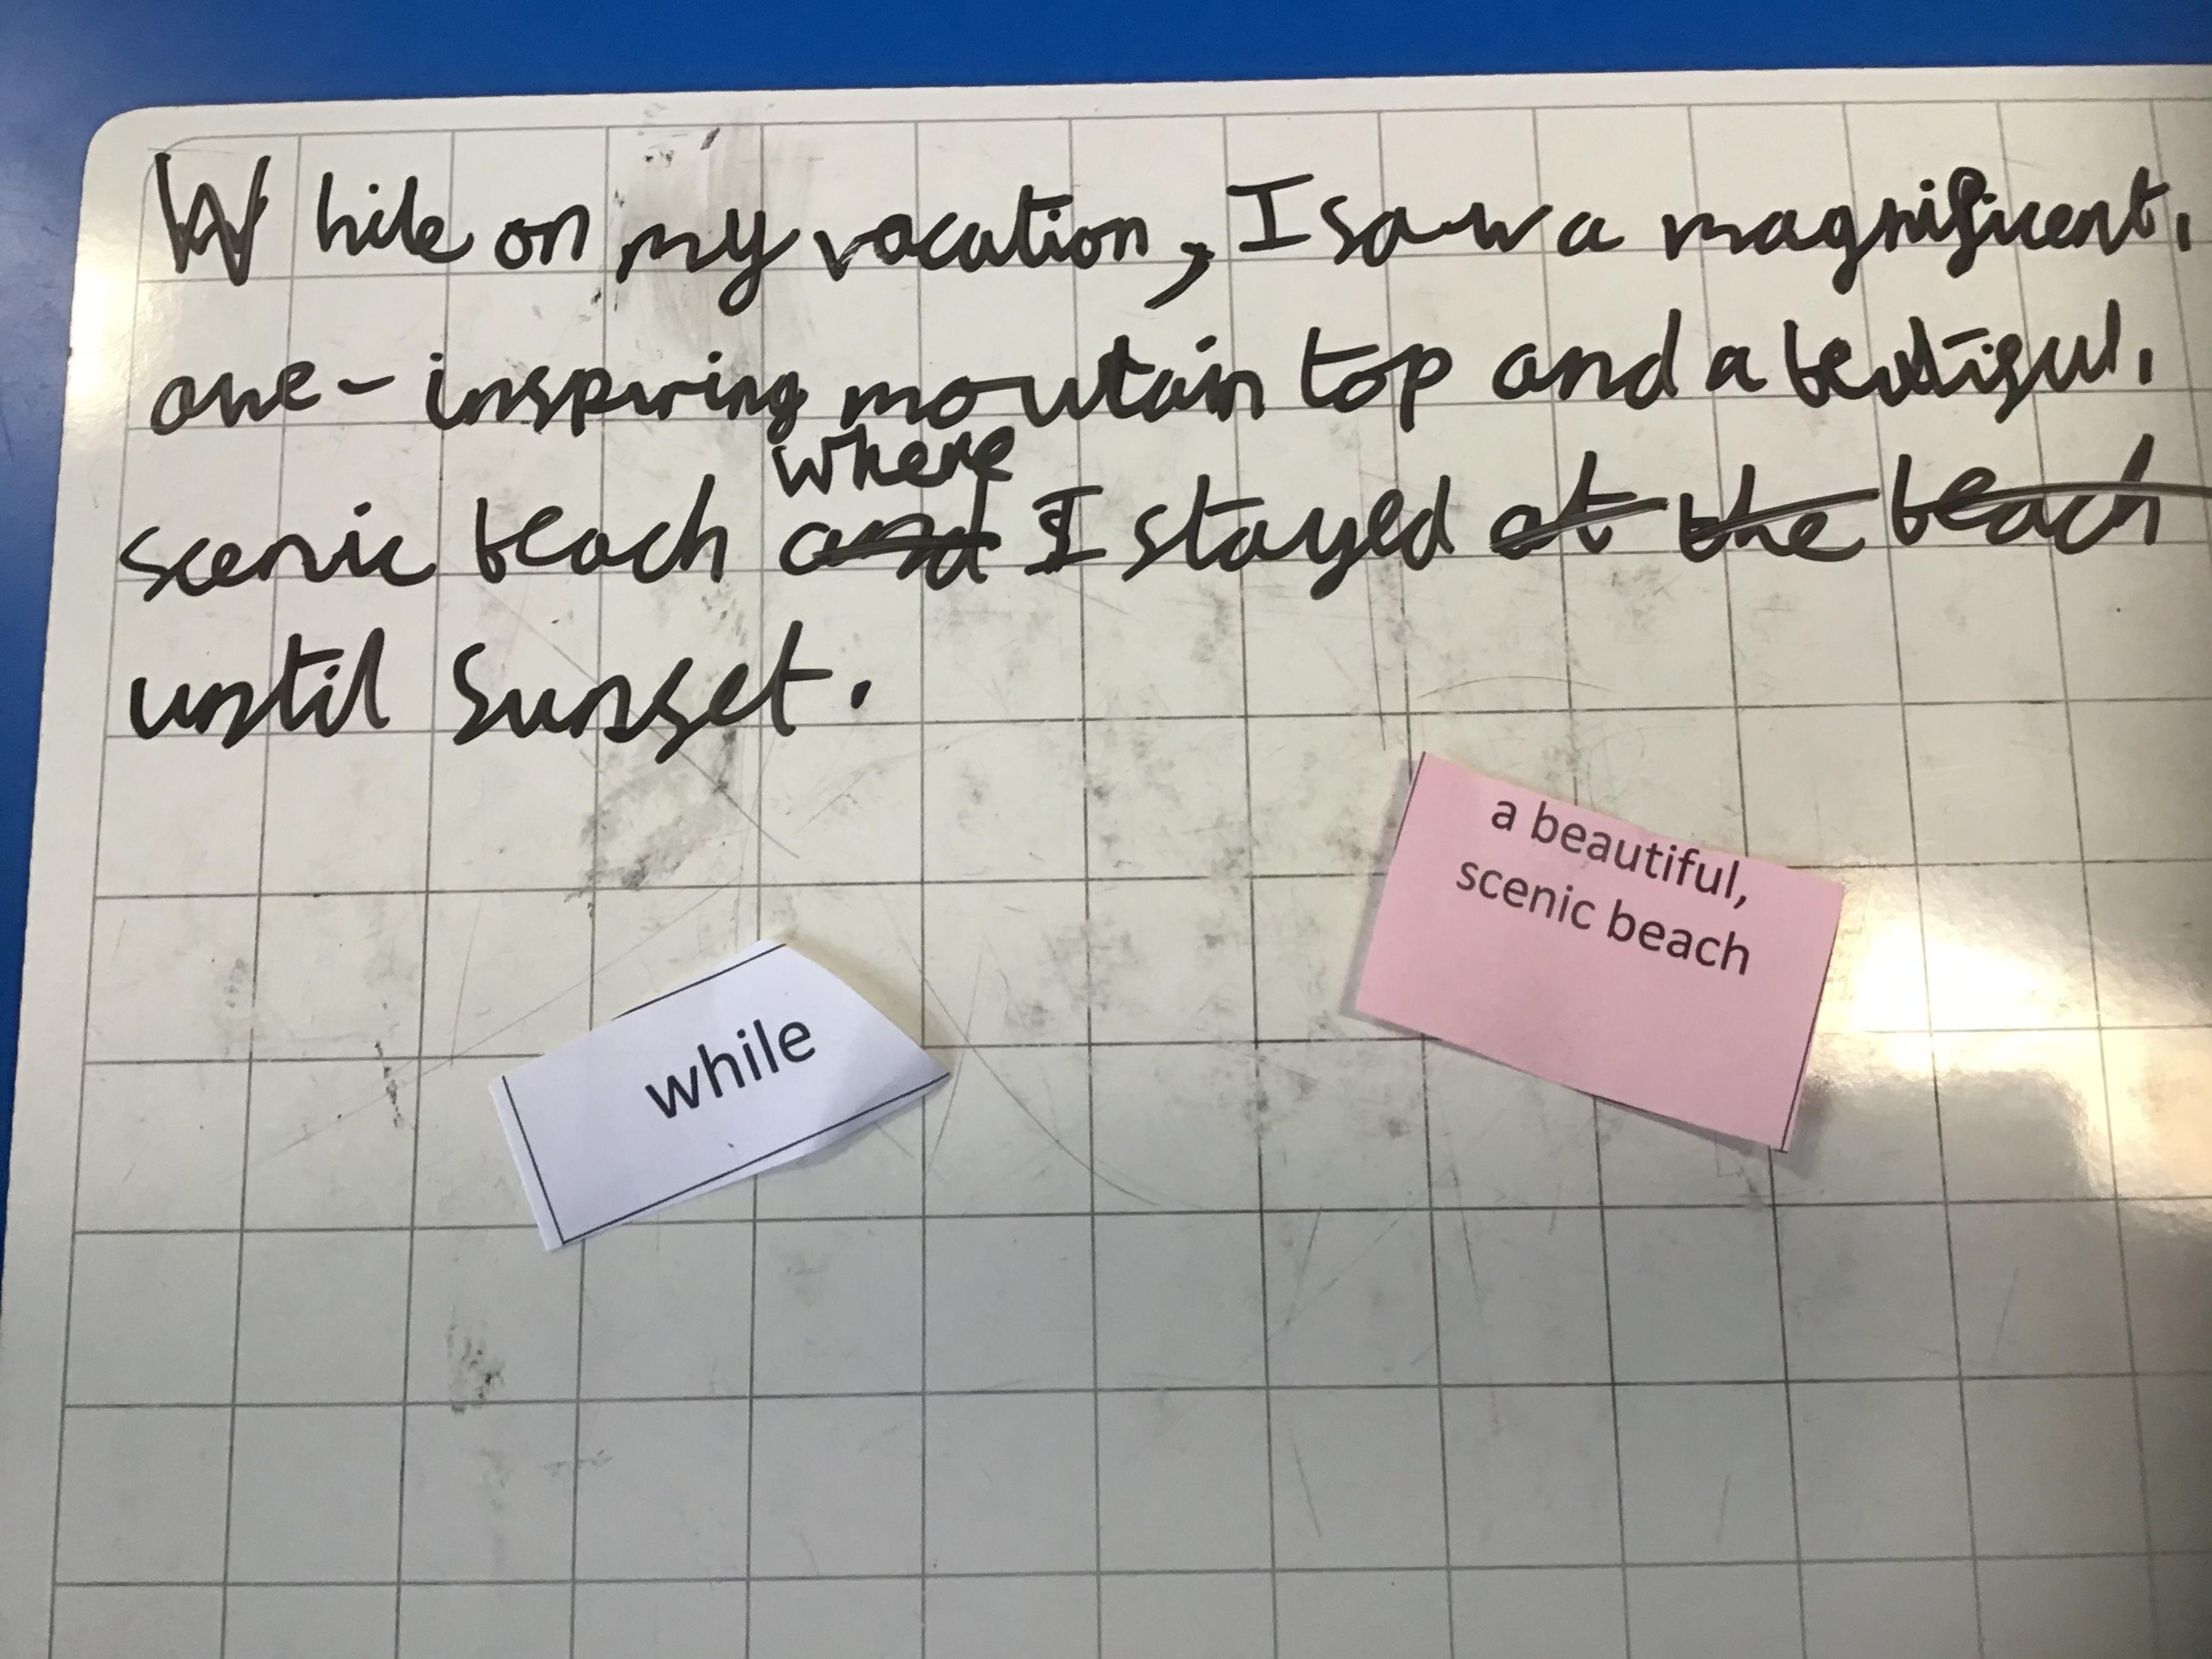 While on my vacation, I saw a magnificent,
awe-inspiring moutain top and a beutiful,
where
scenic beach and I stayed at the beach
until sunset.
a beautiful,
scenic beach
while